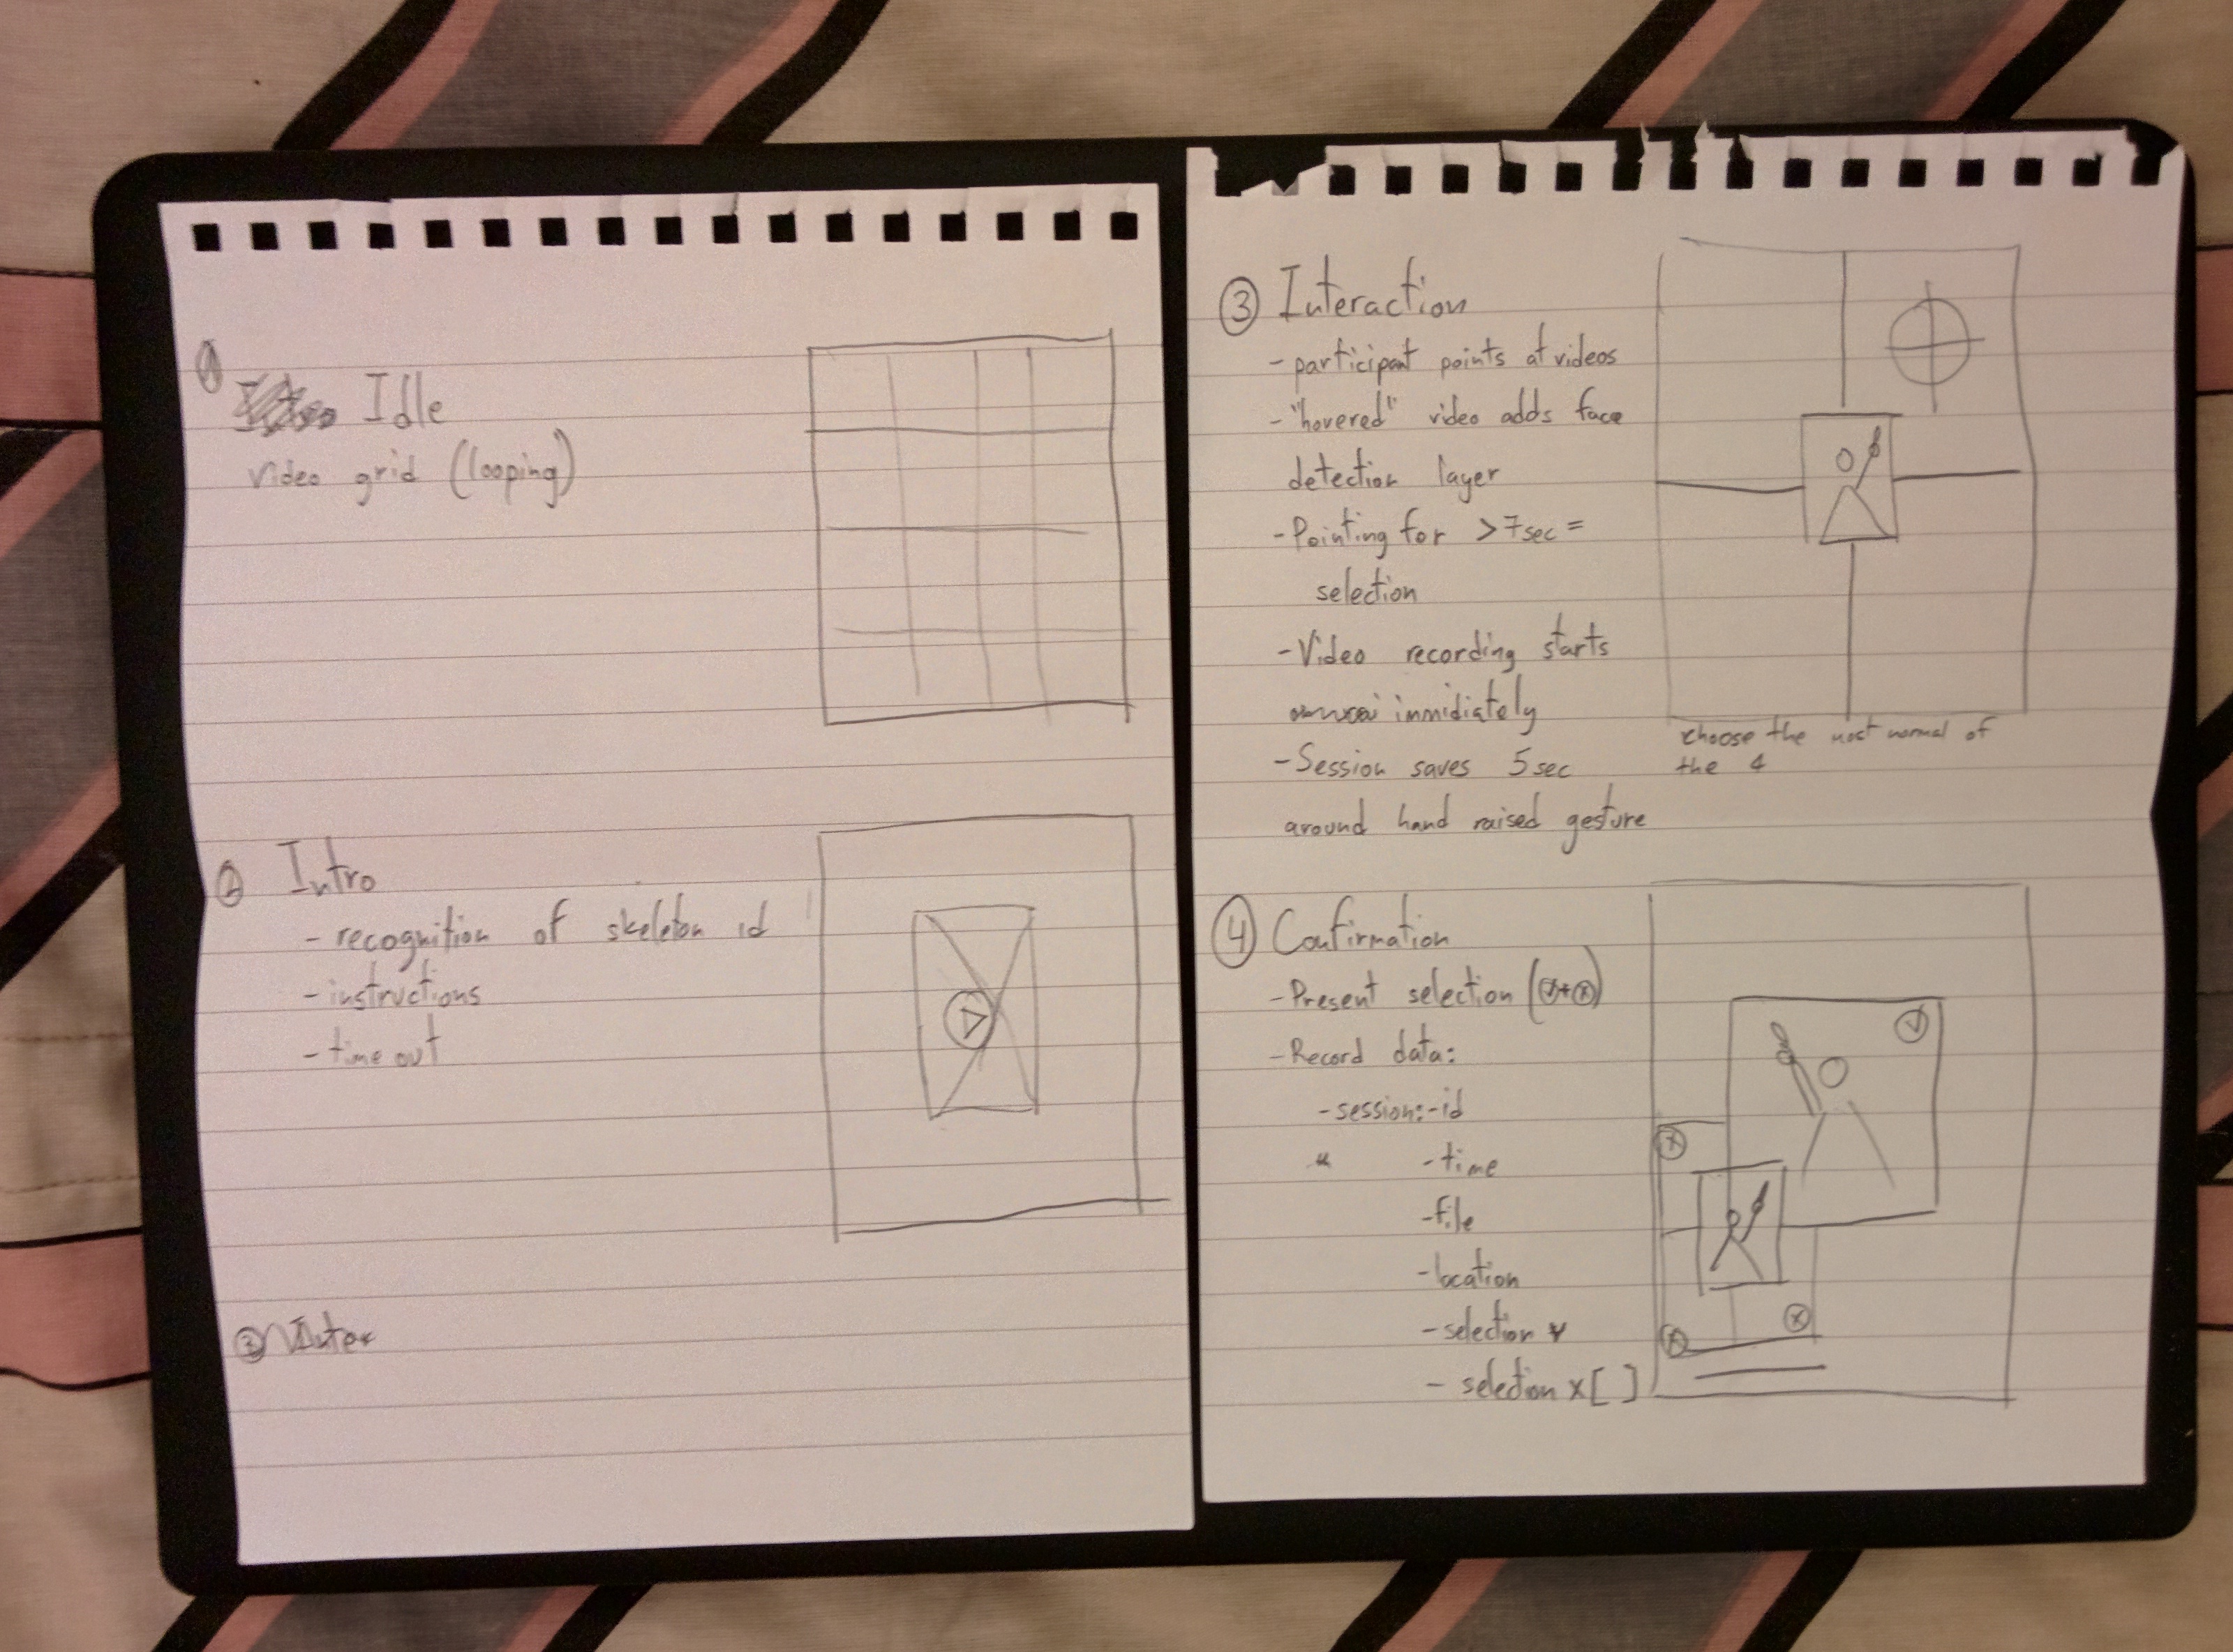 ① Idle
video grid (looping)
② Intro
- recognition of skeleton id
- instructions
- time out
③ Inter
③ Interaction
- participant points at videos
- "hovered" video adds face
detection layer
- Pointing for >7sec =
selection
- Video recording starts
immidiately
- Session saves 5sec
around hand raised gesture
choose the most normal of
the 4
④ Confirmation
- Present selection (ⓥ+ⓧ)
- Record data:
- session: - id
- time
- file
- location
- selection v
- selection x [ ]